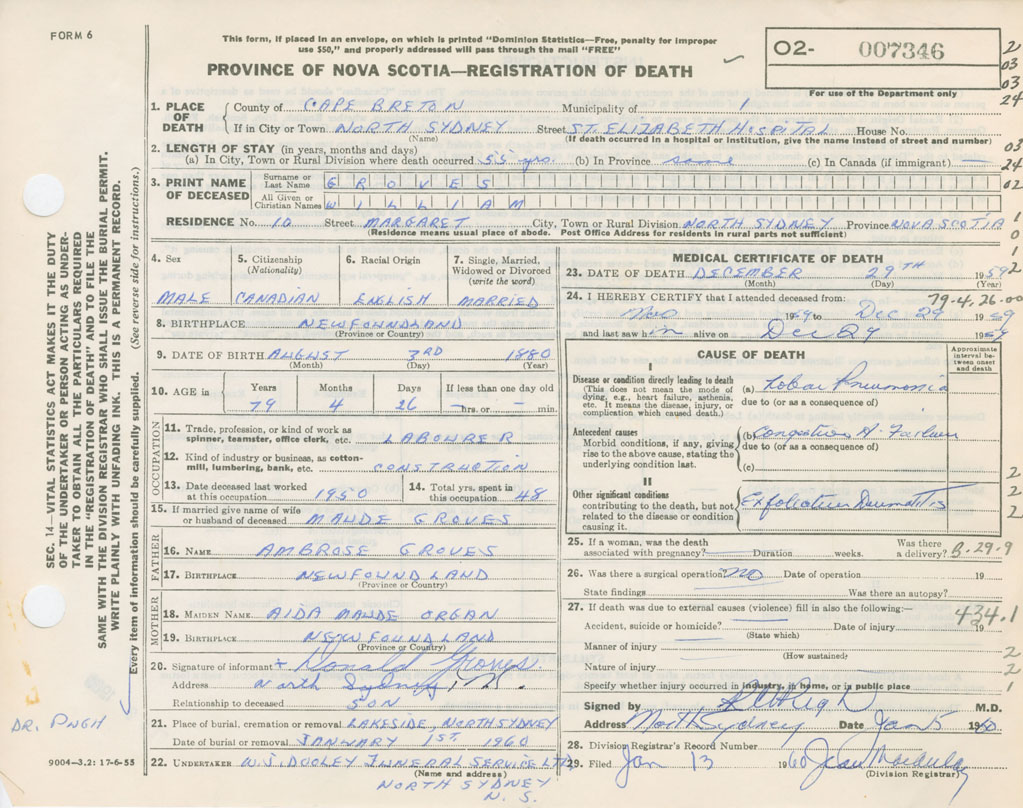 FORM 6
This form, if placed in an envelope, on which is printed "Dominion Statistics—Free, penalty for improper
use $50," and properly addressed will pass through the mail "FREE"
PROVINCE OF NOVA SCOTIA—REGISTRATION OF DEATH
02- 007346
For use of the Department only
2
03
03
24
1. PLACE OF DEATH
County of CAPE BRETON Municipality of 1
If in City or Town NORTH SYDNEY Street ST. ELIZABETH HOSPITAL House No.
(Name) (If death occurred in a hospital or institution, give the name instead of street and number)
03
24
02
2. LENGTH OF STAY (in years, months and days)
(a) In City, Town or Rural Division where death occurred 55 yrs. (b) In Province same (c) In Canada (if immigrant) —
3. PRINT NAME OF DECEASED
Surname or Last Name GROVES
All Given or Christian Names WILLIAM
RESIDENCE No. 10 Street MARGARET City, Town or Rural Division NORTH SYDNEY Province NOVA SCOTIA
(Residence means usual place of abode. Post Office Address for residents in rural parts not sufficient)
1
0
1
2
4. Sex
MALE
5. Citizenship (Nationality)
CANADIAN
6. Racial Origin
ENGLISH
7. Single, Married, Widowed or Divorced (write the word)
MARRIED
8. BIRTHPLACE NEWFOUNDLAND
(Province or Country)
9. DATE OF BIRTH AUGUST 3RD 1880
(Month) (Day) (Year)
10. AGE in
Years Months Days If less than one day old
79 4 26 — hrs. or — min.
OCCUPATION
11. Trade, profession, or kind of work as spinner, teamster, office clerk, etc. LABOURER
12. Kind of industry or business, as cotton-mill, lumbering, bank, etc. CONSTRUCTION
13. Date deceased last worked at this occupation 1950
14. Total yrs. spent in this occupation 48
15. If married give name of wife or husband of deceased MAUDE GROVES
FATHER
16. NAME AMBROSE GROVES
17. BIRTHPLACE NEWFOUNDLAND
(Province or Country)
MOTHER
18. MAIDEN NAME AIDA MAUDE ORGAN
19. BIRTHPLACE NEWFOUNDLAND
(Province or Country)
20. Signature of informant + Donald Groves
Address North Sydney
Relationship to deceased SON
21. Place of burial, cremation or removal LAKESIDE, NORTH SYDNEY
Date of burial or removal JANUARY 1ST 1960
22. UNDERTAKER W. J. DOOLEY FUNERAL SERVICE LTD
(Name and address)
NORTH SYDNEY
N. S.
MEDICAL CERTIFICATE OF DEATH
23. DATE OF DEATH DECEMBER 29TH 1959
(Month) (Day) (Year)
24. I HEREBY CERTIFY that I attended deceased from: 79-4.26-00
1959 to Dec 29 1959
and last saw him alive on Dec 29 1959
CAUSE OF DEATH
Approximate interval between onset and death
I
Disease or condition directly leading to death
(This does not mean the mode of dying, e.g., heart failure, asthenia, etc. It means the disease, injury, or complication which caused death.)
(a) Lobar Pneumonia
due to (or as a consequence of)
Antecedent causes
Morbid conditions, if any, giving rise to the above cause, stating the underlying condition last.
(b) Congestive H. Failure
due to (or as a consequence of)
(c)
II
Other significant conditions
contributing to the death, but not related to the disease or condition causing it.
Exfoliative Dermatitis
2
2
2
25. If a woman, was the death associated with pregnancy? Duration weeks. Was there a delivery? B.-29-9
26. Was there a surgical operation? no Date of operation 19
State findings Was there an autopsy?
27. If death was due to external causes (violence) fill in also the following:—
434.1
Accident, suicide or homicide? Date of injury 19
(State which)
Manner of injury
(How sustained)
Nature of injury
Specify whether injury occurred in industry, in home, or in public place
2
2
1
Signed by M.D.
Address North Sydney Date Jan 5 1960
28. Division Registrar's Record Number
29. Filed Jan 13 1960
(Division Registrar)
SEC. 14—VITAL STATISTICS ACT MAKES IT THE DUTY
OF THE UNDERTAKER OR PERSON ACTING AS UNDER-
TAKER TO OBTAIN ALL THE PARTICULARS REQUIRED
IN THE "REGISTRATION OF DEATH" AND TO FILE THE
SAME WITH THE DIVISION REGISTRAR WHO SHALL ISSUE THE BURIAL PERMIT.
WRITE PLAINLY WITH UNFADING INK. THIS IS A PERMANENT RECORD.
Every item of information should be carefully supplied. (See reverse side for instructions.)
DR. PUGH
9004—3.2: 17-6-55